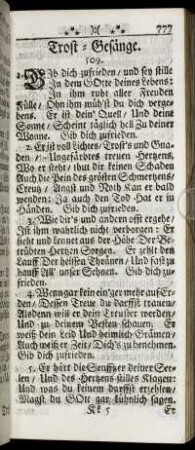 777
Trost-Gesänge.
509.
Gib dich zufrieden/ und sey stille
In dem GOtte deines Lebens:
In ihm ruht aller Freuden
Fülle/ Ohn ihm mühst du dich verge-
bens. Er ist dein Quell/ Und deine
Sonne/ Scheint täglich hell Zu deiner
Wonne. Gib dich zufrieden.
2. Er ist voll Lichtes/ Trost's und Gna-
den/ Ungefärbtes treuen Hertzens,
Wo er steht/ thut dir keinen Schaden
Auch die Pein des grösten Schmertzens/
Creutz/ Angst und Noth Kan er bald
wenden: Ja auch den Tod Hat er in
Händen. Gib dich zufrieden.
3. Wie dir's und andern offt ergehe/
Ist ihm wahrlich nicht verborgen: Er
sieht und kennet aus der Höhe Der Be-
trübten Hertzen Sorgen. Er zehlt den
Lauff Der heissen Thränen/ Und fast zu
hauff All' unser Sehnen. Gib dich zu-
frieden.
4. Wenn gar kein ein'ger mehr auf Er-
den/ Dessen Treue du darffst trauen/
Alsdenn will er dein Treuster werden/
Und zu deinem Besten schauen. Er
weiß dein Leid Und heimlich Grämen/
Auch weiß er Zeit/ Dich's zu benehmen.
Gib dich zufrieden.
5. Er hört die Seuffzer deiner See-
len/ Und des Hertzens stilles Klagen:
Und was du keinem darffst erzehlen/
Magst du GOtt gar kühnlich sagen.
5 Er